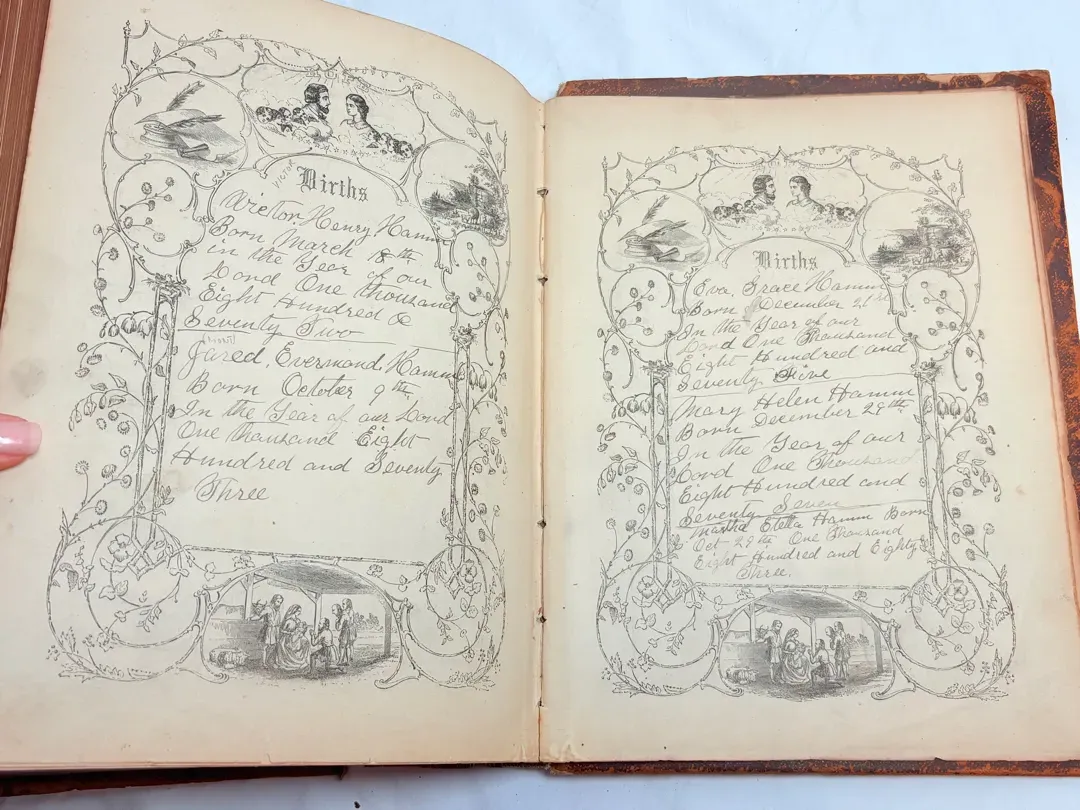 Births
Victor
Victor. Henry. Hamm
Born March 18th
in the Year of our
Lord One thousand
Eight Hundred &
Seventy Two
Jared. Evermond. Hamm
Born October 9th
In the Year of our Lord
One Thousand Eight
Hundred and Seventy
Three
Births
Eva. Grace Hamm
Born December
In the Year of our
Lord One Thousand
Eight Hundred and
Seventy Five
Mary Helen Hamm
Born December 29th
In the Year of our
Lord One Thousand
Eight Hundred and
Seventy Seven
Martha Etella Hamm Born
Oct 29th One Thousand
Eight Hundred and Eighty
Three.